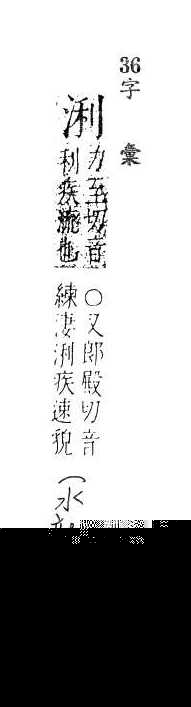 36字彙
浰
力至切音
利疾流也
○又郎殿切音
練淒浰疾速貌
(水